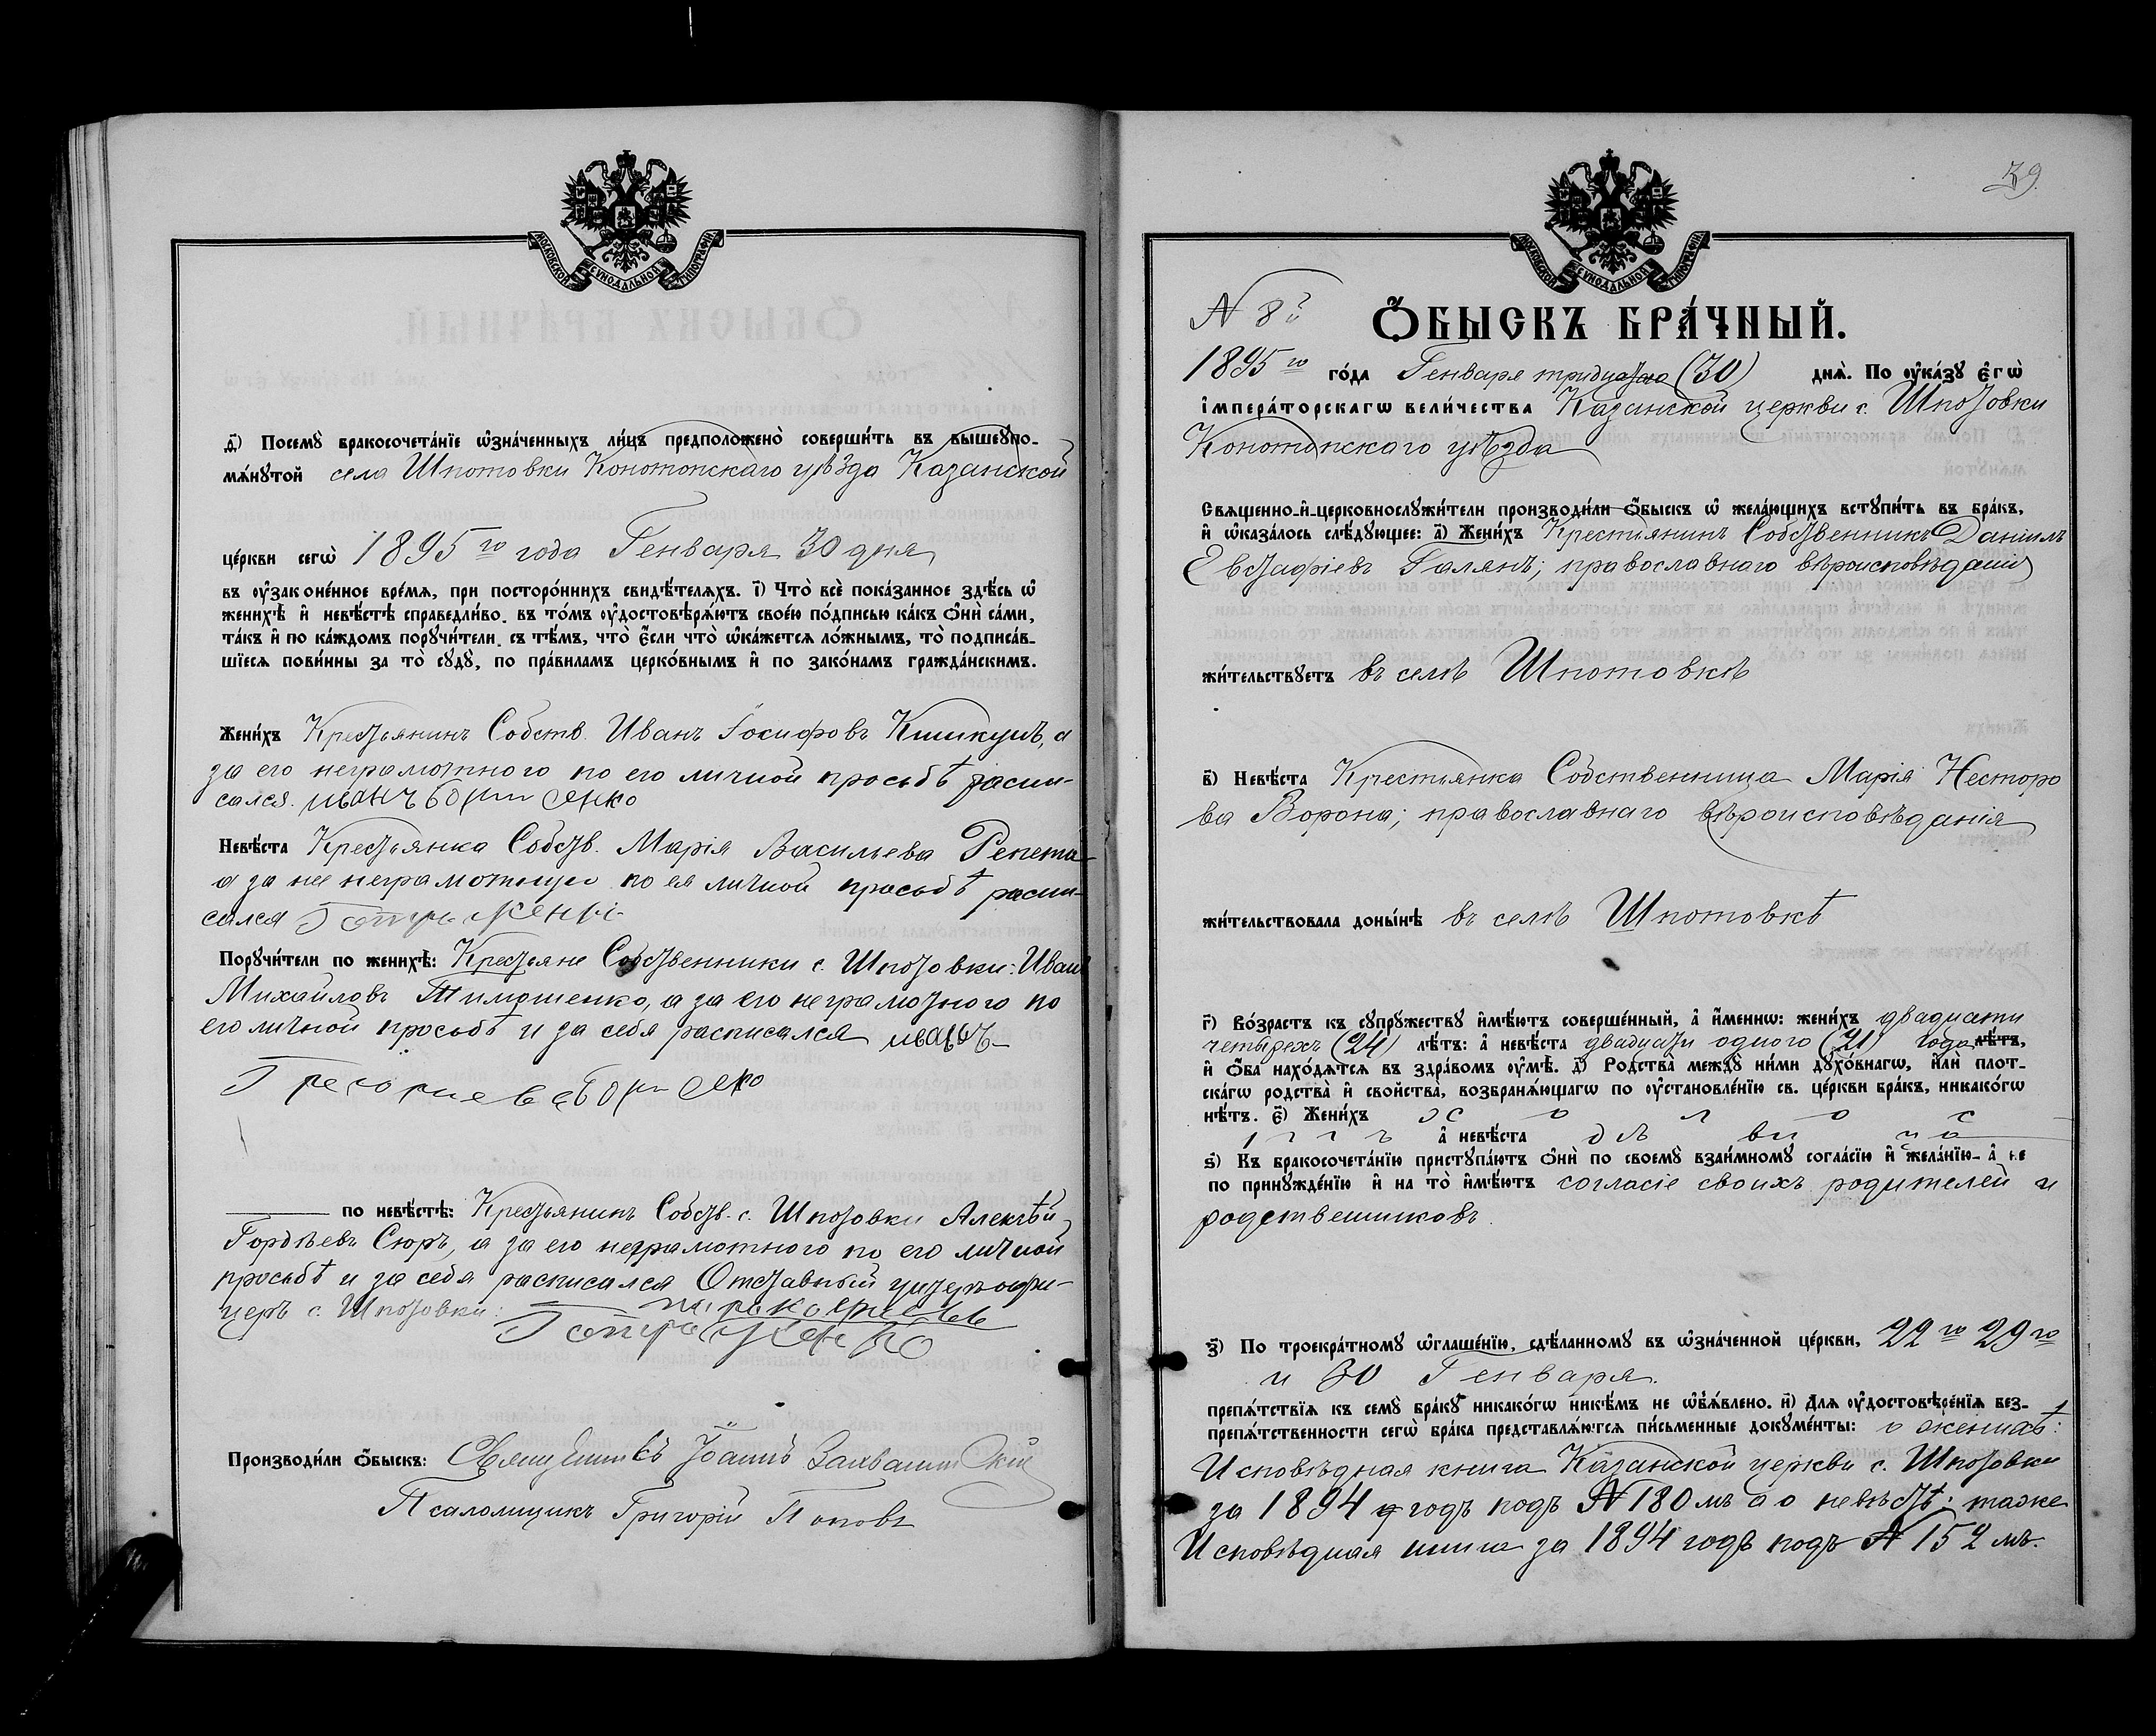 МОСКОВСКОЙ СѴНОДАЛЬНОЙ ТИПОГРАФІИ
д҃і) Посемꙋ̀ бракосочета́нїе ѡ҆зна́ченныхъ ли́цъ предположено̀ соверши́ть въ вышеꙋпо-
мѧ́нꙋтой села Шпотовки Конотопскаго уѣзда Казанской
це́ркви сегѡ̀ 1895го года Генваря 30 дня
въ ᲂу҆зако́не́нное вре́мѧ, при посторо́ннихъ свидѣ́телѧхъ. і҃) Что̀ всѐ пока́занное здѣ́сь ѡ҆
женихѣ̀ и҆ невѣ́стѣ справедли́во, въ то́мъ ᲂу҆достовѣрѧ́ютъ свое́ю по́дписью ка́къ ѻ҆нѝ са́ми,
та́къ и҆ по ка́ждомъ порꙋчи́тели, съ тѣ́мъ, что̀ є҆́сли что̀ ѡ҆ка́жетсѧ ло́жнымъ, то̀ подписа́в-
шїесѧ пови́нны за то̀ сꙋдꙋ̀, по пра́виламъ церко́внымъ и҆ по зако́намъ гражда́нскимъ.
Жени́хъ Крестьянинъ Собств. Иванъ Іосифовъ Кшикунъ, а
за его неграмотного по его личной просьбѣ распи-
сался. иванъ
Невѣ́ста Крестьянка Собств. Марія Васильева Репета
а за нее неграмотную по ея личной просьбѣ распи-
сался
Порꙋчи́тели по женихѣ̀: Крестьяне Собственники с. Шпотовки: Иванъ
Михайловъ Тимошенко, а за его неграмотного по
его личной просьбѣ и за себя расписался иванъ
по невѣ́стѣ: Крестьянинъ Собств. с. Шпотовки Алексѣй
Гордѣевъ Сюръ, а за его неграмотного по его личной
просьбѣ и за себя расписался Отставный унтеръ-офи-
церъ с. Шпотовки:
Производи́ли ѻ҆́быскъ: Священникъ Іоаннъ
Псаломщикъ Григорій Поповъ
39.
МОСКОВСКОЙ СѴНОДАЛЬНОЙ ТИПОГРАФІИ
№ 8й
Ѻ҆́БЫСКЪ БРА́ЧНЫЙ.
1895го го́да Генваря тридцатаго (30) днѧ̀. По ᲂу҆ка́зꙋ є҆гѡ̀
і҆мпера́торскагѡ вели́чества Казанской церкви с. Шпотовки
Конотопскаго уѣзда
Свѧщенно-и҆-церковнослꙋжи́тели производи́ли ѻ҆́быскъ ѡ҆ жела́ющихъ встꙋпи́ть въ бра́къ,
и҆ ѡ҆каза́лось слѣ́дꙋющее: а҃) Жени́хъ Крестьянинъ Собственникъ Даніилъ
Евстафіевъ Галянъ; православнаго вѣроисповѣданія
жи́тельствꙋетъ въ селѣ Шпотовкѣ
в҃) Невѣ́ста Крестьянка Собственница Марія Несторо
ва Ворона; православнаго вѣроисповѣданія
жи́тельствовала доны́нѣ въ селѣ Шпотовкѣ
г҃) Во́зрастъ къ сꙋпрꙋ́жествꙋ и҆мѣ́ютъ соверше́нный, а҆ и҆́меннѡ: жени́хъ двадцати
четырехъ (24) лѣ́тъ: а҆ невѣ́ста двадцати одного (21) года лѣ́тъ,
и҆ ѻ҆́ба нахо́дѧтсѧ въ здра́вомъ ᲂу҆мѣ̀. д҃) Родства̀ междꙋ̀ ни́ми дꙋхо́внагѡ, и҆лѝ плот-
ска́гѡ родства̀ и҆ сво́йства, возбранѧ́ющагѡ по ᲂу҆становле́нїю св. це́ркви бра́къ, никако́гѡ
нѣ́тъ. є҃) Жени́хъ холо
стъ а҆ невѣ́ста дѣвица
ѕ҃) Къ бракосочета́нїю пристꙋпа́ютъ ѻ҆нѝ по своемꙋ̀ взаи́мномꙋ согла́сїю и҆ жела́нїю, а҆ не
по принꙋжде́нїю и҆ на то̀ и҆мѣ́ютъ согласіе своихъ родителей и
родственниковъ.
з҃) По троекра́тномꙋ ѡ҆глаше́нїю, сдѣ́ланномꙋ въ ѡ҆зна́ченной це́ркви, 22го 29го
и 30 Генваря.
препѧ́тствїѧ къ семꙋ̀ бра́кꙋ никако́гѡ никѣ́мъ не ѡ҆б̾ѧ́влено. и҃) Длѧ ᲂу҆достовѣре́нїѧ без-
препѧ́тственности сегѡ̀ бра́ка представлѧ́ютсѧ пи́сьменные докꙋме́нты: о женихѣ:
Исповѣдная книга Казанской церкви с. Шпотовки
за 1894 годъ подъ № 180мъ а о невѣстѣ: таже
Исповѣдная книга за 1894 годъ подъ № 152мъ.